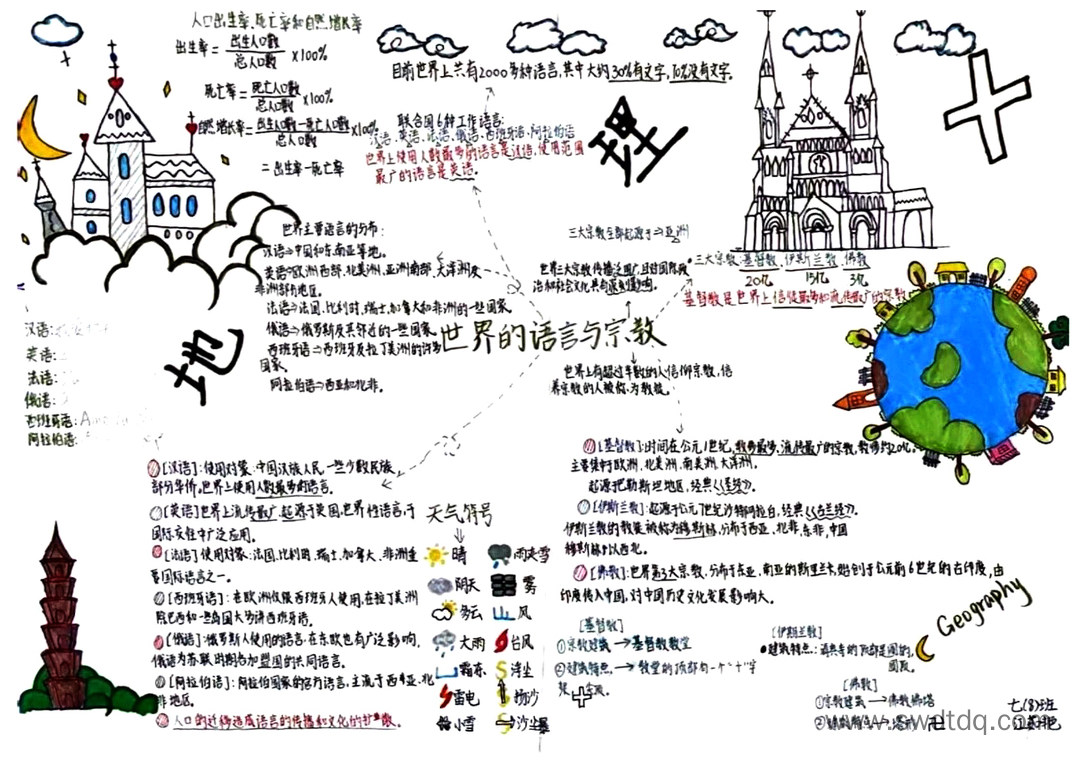 人口出生率、死亡率和自然增长率
出生率 = 出生人口数/总人口数 ×100%
死亡率 = 死亡人口数/总人口数 ×100%
自然增长率 = 出生人口数-死亡人口数/总人口数 ×100%
= 出生率-死亡率
目前世界上共有2000多种语言,其中大约30%有文字,70%没有文字。
联合国6种工作语言:
汉语、英语、法语、俄语、西班牙语、阿拉伯语
世界上使用人数最多的语言是汉语,使用范围
最广的语言是英语。
地
理
世界主要语言的分布:
汉语→中国和东南亚等地。
英语→欧洲西部、北美洲、亚洲南部、大洋洲及
非洲部分地区。
法语→法国、比利时、瑞士、加拿大和非洲的一些国家
俄语→俄罗斯及其邻近的一些国家
西班牙语→西班牙及拉丁美洲的许多
国家。
阿拉伯语→西亚和北非。
世界的语言与宗教
三大宗教全部起源于→亚洲
三大宗教:基督教、伊斯兰教、佛教
20亿 13亿 3亿
基督教是世界上信徒最多和流传最广的宗教
世界三大宗教传播泛围广,且对国际政
治和社会文化具有深刻影响。
世界上有超过半数的人信仰宗教,信
养宗教的人被称为教徒。
汉语:
英语:
法语:
俄语:
西班牙语:
阿拉伯语:
[汉语]:使用对象:中国汉族人民,一些少数民族
部分华侨。世界上使用人数最多的语言。
[英语]世界上流传最广,起源于英国,世界性语言,于
国际交往中广泛应用。
[法语]使用对象:法国、比利时、瑞士、加拿大、非洲重
要国际语言之一。
[西班牙语]:在欧洲仅限西班牙人使用,在拉丁美洲
[俄语]:俄罗斯人使用的语言,在东欧也有广泛影响,
俄语为苏联时期各加盟国的共同语言。
[阿拉伯语]:阿拉伯国家的官方语言,主流于西亚、北
非地区。
人口的迁移造成语言的传播和文化的扩散。
天气符号
晴 雨夹雪
阴天 雾
多云 风
大雨 台风
霜冻 浮尘
雷电 扬沙
小雪 沙尘暴
[基督教]:时间在公元1世纪,教徒最多,流传最广的宗教,教徒约20亿,
主要集中于欧洲、北美洲、南美洲、大洋洲。
起源巴勒斯坦地区,经典《圣经》。
[伊斯兰教]:起源于公元7世纪沙特阿拉伯,经典《古兰经》。
伊斯兰教的教徒被称为穆斯林,分布于西亚、北非、东非,中国
穆斯林多以西北。
[佛教]:世界第3大宗教,分布于东亚、南亚的斯里兰卡,始创于公元前6世纪的古印度,由
印度传入中国,对中国历史文化发展影响大。
[基督教]
①宗教建筑→基督教教堂
②建筑特点→教堂的顶部有一个“十”字
架
[伊斯兰教]
建筑特点:清真寺的顶部是圆的,
[佛教]
①宗教建筑→佛教佛塔
Geography
七(8)班